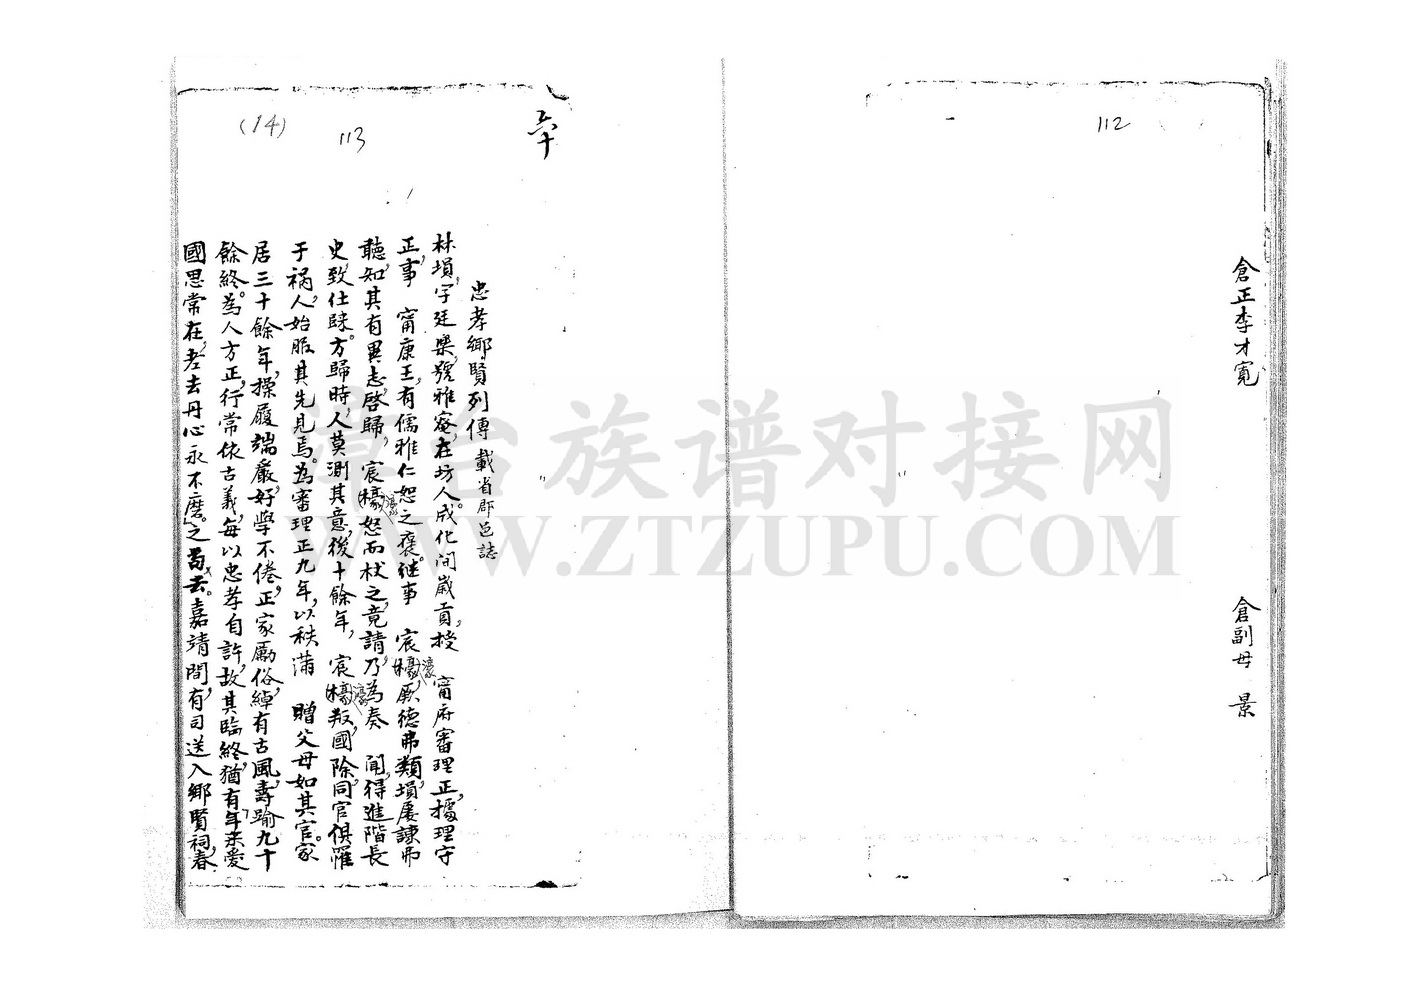 112
倉正李才寬
倉副毋　景
六十
113
(14)
忠孝鄉賢列傳 載省郡邑誌
林塤，字廷樂，號雅菴，在坊人。成化間歲貢，授　甯府審理正，據理守
正事　甯康王，有儒雅仁恕之褒。继事　宸(檺)濠，厥德弗類，塤屡諫弗
聽，知其有異志，啓歸，　宸(檺)濠怒而杖之，竟請，乃為奏　聞，得進階長
史，致仕。方歸時，人莫測其意，後十餘年，　宸(檺)濠叛，國除，同官俱罹
于禍，人始服其先見焉。為審理正九年，以秩滿　贈父母如其官。家
居三十餘年，操履端嚴，好學不倦，正家勵俗，綽有古風，壽踰九十
餘終。為人方正，行常依古義，每以忠孝自許，故其臨終，猶有年来愛
國思常在，老去丹心永不磨。之句云。嘉靖間，有司送入鄉賢祠，春
漳台族谱对接网
WWW.ZTZUPU.COM